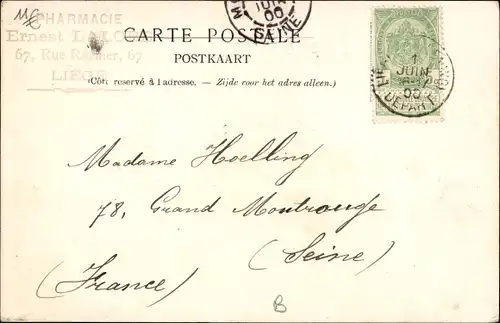 PHARMACIE
Ernest
67, Rue 67
LIÉGE
CARTE POSTALE
POSTKAART
(Côté reservé à l'adresse. — Zijde voor het adres alleen.)
1
JUIN
00
DÉPART
JUIN
00
SEINE
Madame Hoelling
78, Grand Montrouge
(Seine)
(France)
B